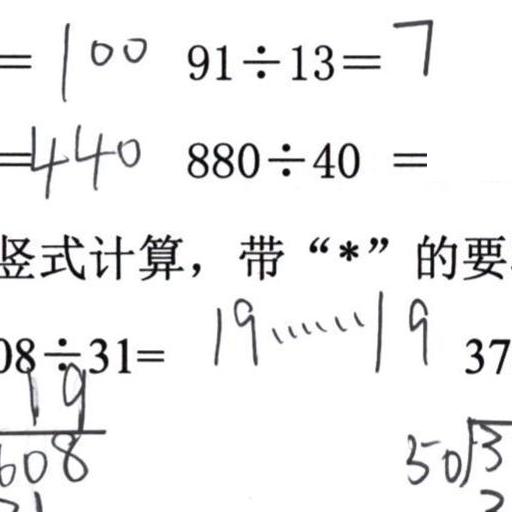 =100 91÷13=7
=440 880÷40 =
竖式计算，带“*”的要
08÷31= 19……19 37
19
608 50 3